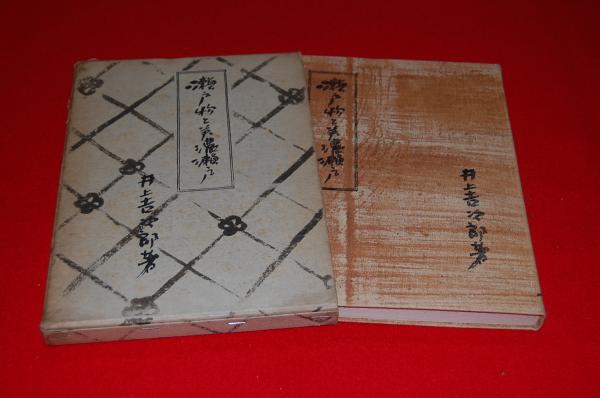 瀬戸物と美濃瀬戸
井上吉次郎著
瀬戸物と美濃瀬戸
井上吉次郎著